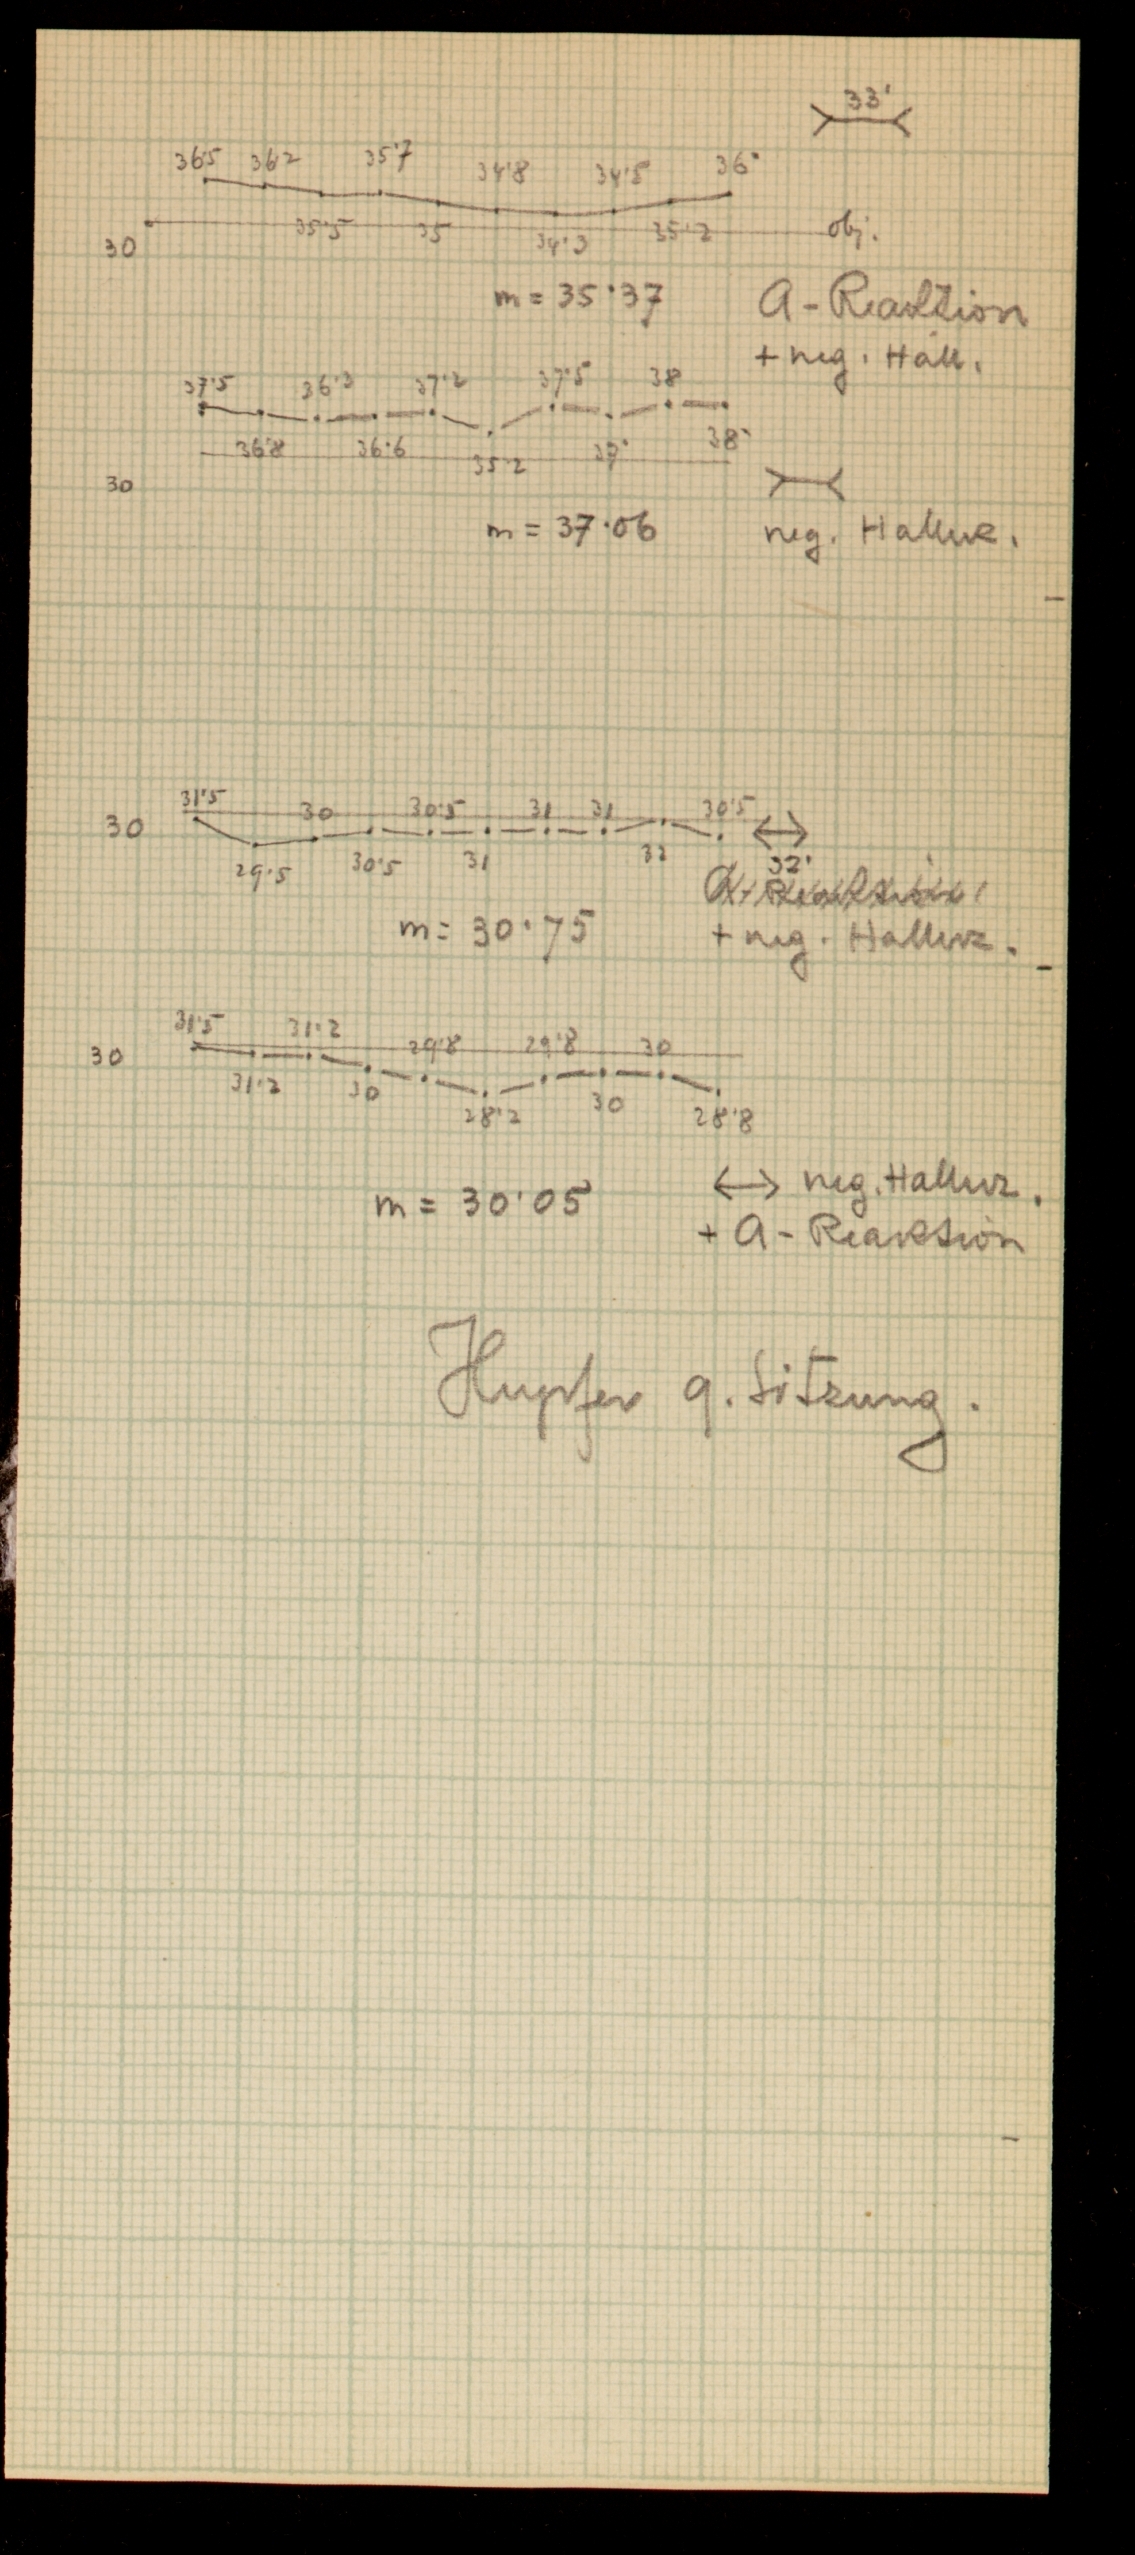 33'
36·5 36·2 35·7 34·8 34·5 36·
35·5 35 34·3 35·2 obj.
30
m = 35·37 A-Reaktion
+ neg. Hall.
37·5 36·3 37·2 37·5 38
36·8 36·6 35·2 37· 38·
30
m = 37·06 neg. Halluz.
31·5 30 30·5 31 31 30·5
30
29·5 30·5 31 32 32'
A-Reaktion
m = 30·75 + neg. Halluz.
31·5 31·2 29·8 29·8 30
30
31·2 30 28·2 30 28·8
m = 30·05 ↔ neg. Halluz.
+ A-Reaktion
Hupfer 9. Sitzung.